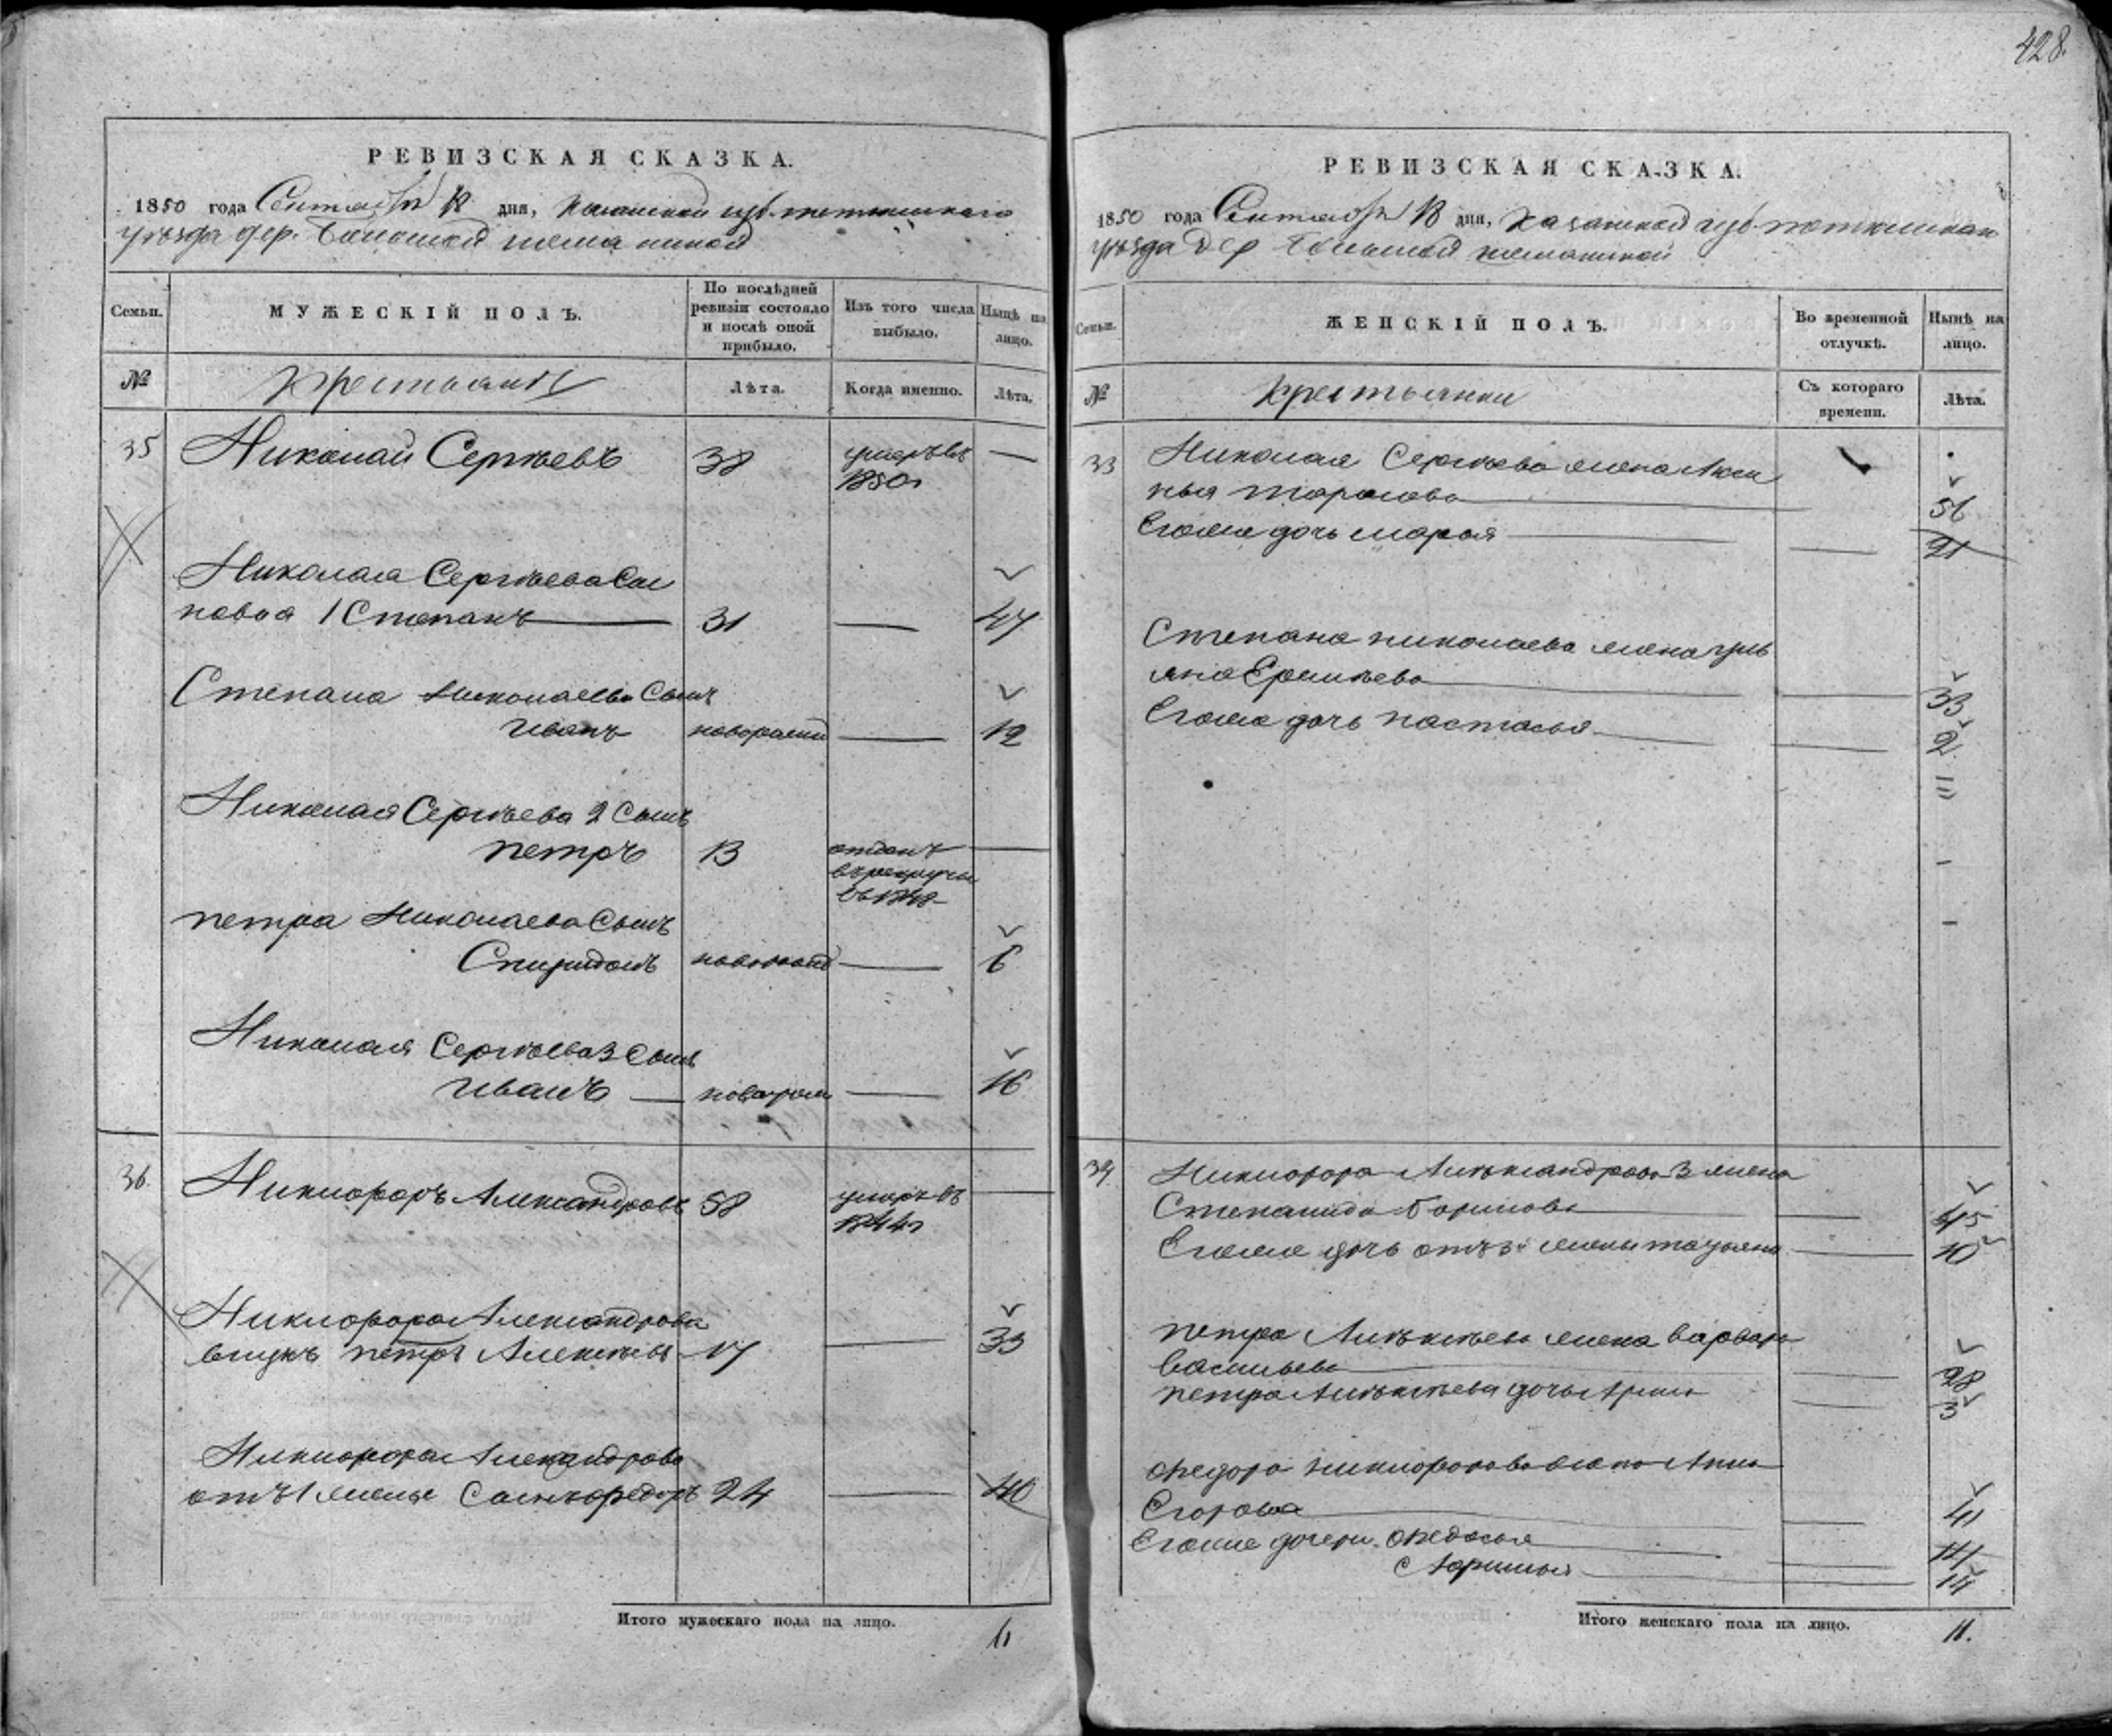 428.
РЕВИЗСКАЯ СКАЗКА.
1850 года Сентября 18 дня, Казанской губ. тетюшскаго
уѣзда дер. Большой
Семьи.
МУЖЕСКІЙ ПОЛЪ.
По послѣдней ревизіи состояло и послѣ оной прибыло.
Изъ того числа выбыло.
Нынѣ на лицо.
№
Крестьяне
Лѣта.
Когда именно.
Лѣта.
35 Николай Сергѣевъ 38 умеръ въ
1850г
Николая Сергѣева Сы
новья 1 Степанъ 31 47
Степана Николаева Сынъ
Иванъ новорожд 12
Николая Сергѣева 2 Сынъ
петръ 13 отданъ
въ рекруты
въ 1848
петра Николаева Сынъ
Спиридонъ новорожд 6
Николая Сергѣева 3 Сынъ
Иванъ новорож 16
36 Никифоръ Александровъ 58 умеръ въ
1844г
Никифора Александрова
внукъ петръ Алексѣевъ 17 33
Никифора Александрова
отъ 1 жены Сынъ Федоръ 24 40
Итого мужескаго пола на лицо. 6
РЕВИЗСКАЯ СКАЗКА.
1850 года Сентября 18 дня, Казанской губ. тетюшскаго
уѣзда дер Большой
Семьи.
ЖЕНСКІЙ ПОЛЪ.
Во временной отлучкѣ.
Нынѣ на лицо.
№
Крестьянки
Съ котораго времени.
Лѣта.
33 Николая Сергѣева жена Акси
нья тарасова 56
Егоже дочь марья 21
Степана николаева жена уль
яна Еремѣева 33
Егоже дочь настасья 2
34 Никифора Алѣксандрова 3 жена
Степанида борисова 45
Егоже дочь отъ 3й жены татьяна 10
петра Алѣксѣева жена варвара
васильева 28
петра Алѣксѣева дочь Арина 3
Федора никифорова жена Анна
Егорова 41
Егоже дочери Федосья 14
14
Итого женскаго пола на лицо. 11.